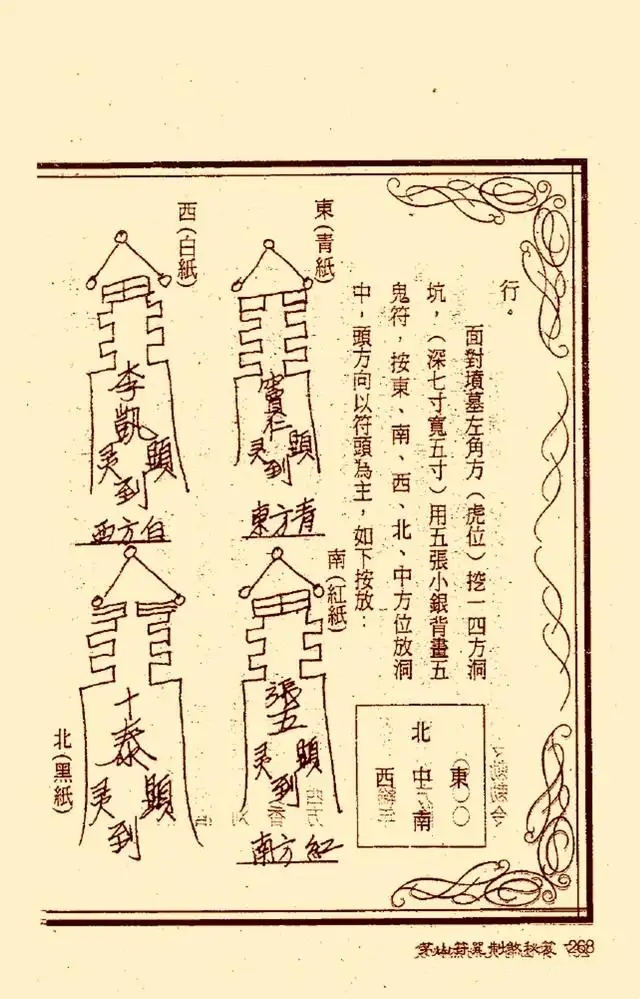 行。
面對墳墓左角方（虎位）挖一四方洞
坑，（深七寸寬五寸）用五張小銀背畫五
鬼符，按東、南、西、北、中方位放洞
中，頭方向以符頭為主，如下按放：
東
北中南
西
東（青紙）
竇仁
顕到灵
東方青
南（紅紙）
張五
顕到灵
南方紅
西（白紙）
李凱
顕到灵
西方白
北（黑紙）
十泰
顕到灵
茅山符咒制煞秘笈 268